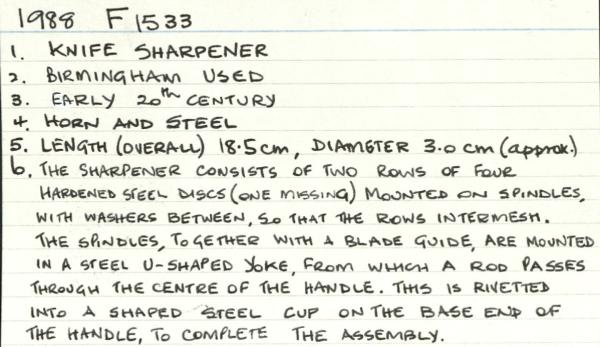 1988 F1533
1. KNIFE SHARPENER
2. BIRMINGHAM USED
3. EARLY 20th CENTURY
4. HORN AND STEEL
5. LENGTH (OVERALL) 18.5cm, DIAMETER 3.0cm (approx.)
6. THE SHARPENER CONSISTS OF TWO ROWS OF FOUR
HARDENED STEEL DISCS (ONE MISSING) MOUNTED ON SPINDLES,
WITH WASHERS BETWEEN, SO THAT THE ROWS INTERMESH.
THE SPINDLES, TOGETHER WITH A BLADE GUIDE, ARE MOUNTED
IN A STEEL U-SHAPED YOKE, FROM WHICH A ROD PASSES
THROUGH THE CENTRE OF THE HANDLE. THIS IS RIVETTED
INTO A SHAPED STEEL CUP ON THE BASE END OF
THE HANDLE, TO COMPLETE THE ASSEMBLY.